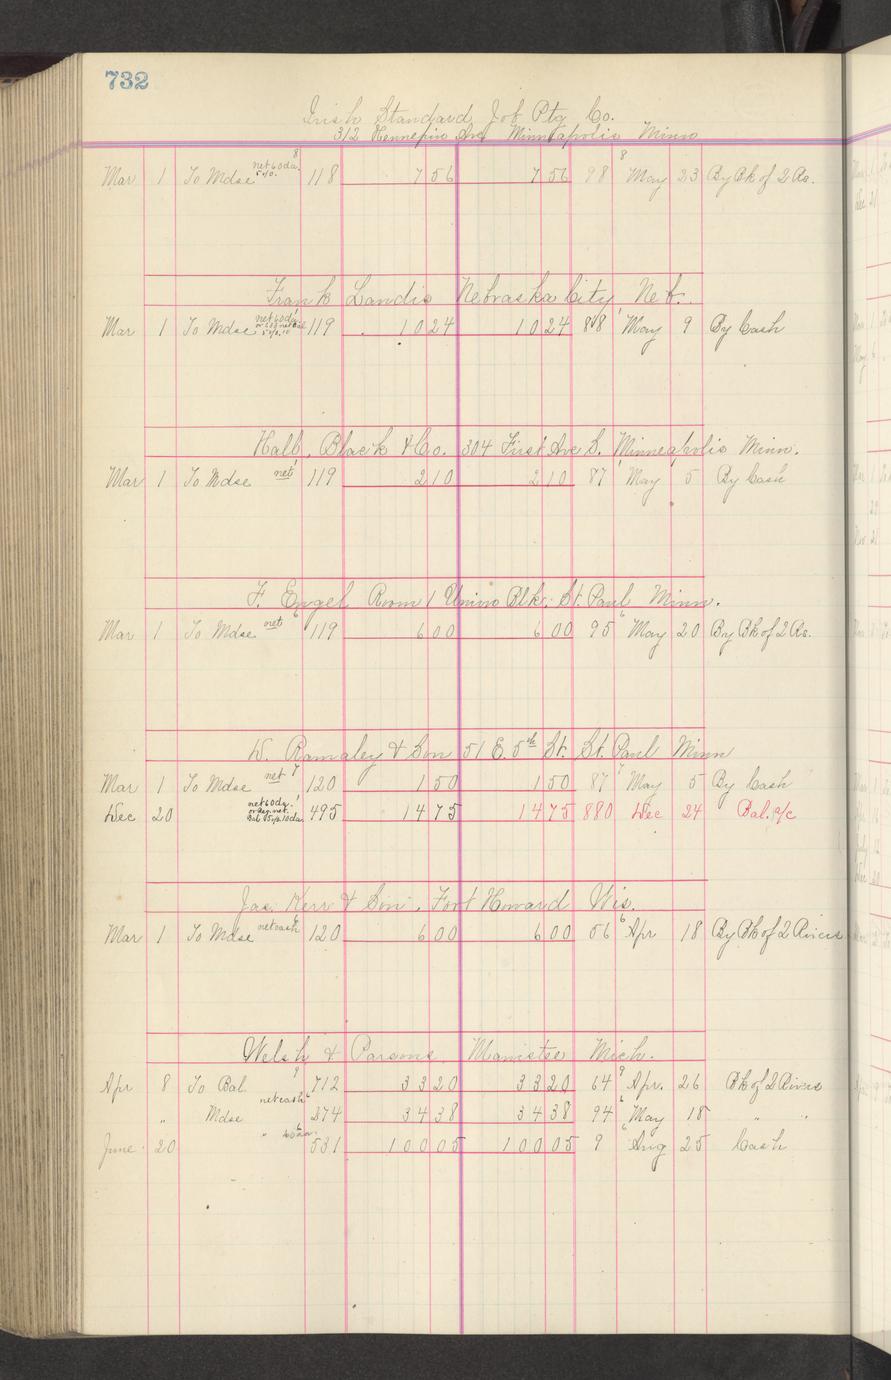 732
Irish Standard Job Ptg Co.
312 Hennepin Ave Minneapolis Minn
Mar 1 To Mdse net 60 da. 5%. 8 118 7 56 7 56 98 8 May 23 By Bk of 2 Rs.
Frank Landis Nebraska City Neb.
Mar 1 To Mdse net 60 da. 119 10 24 10 24 88 1 May 9 By Cash
Hall, Black & Co. 304 First Ave S. Minneapolis Minn.
Mar 1 To Mdse net 1 119 2 10 2 10 87 1 May 5 By Cash
F. Engel Room 1 Union Blk. St. Paul Minn.
Mar 1 To Mdse net 6 119 6 00 6 00 95 6 May 20 By Bk of 2 Rs.
D. Ramaley & Son 51 E. 5th St. St. Paul Minn
Mar 1 To Mdse net 7 120 1 50 1 50 87 7 May 5 By Cash
Dec 20 net 60 dy. 1 495 14 75 14 75 880 Dec 24 Bal. a/c
Jas. Kerr & Son, Fort Howard Wis.
Mar 1 To Mdse net cash 6 120 6 00 6 00 56 6 Apr 18 By Bk of 2 Rivers
Welsh & Parsons, Manistee Mich.
Apr 8 To Bal 9 712 33 20 33 20 64 9 Apr. 26 Bk of 2 Rivers
" Mdse net cash 6 274 34 38 34 38 94 6 May 18 " "
June 20 " 531 100 05 100 05 9 6 Aug 25 Cash